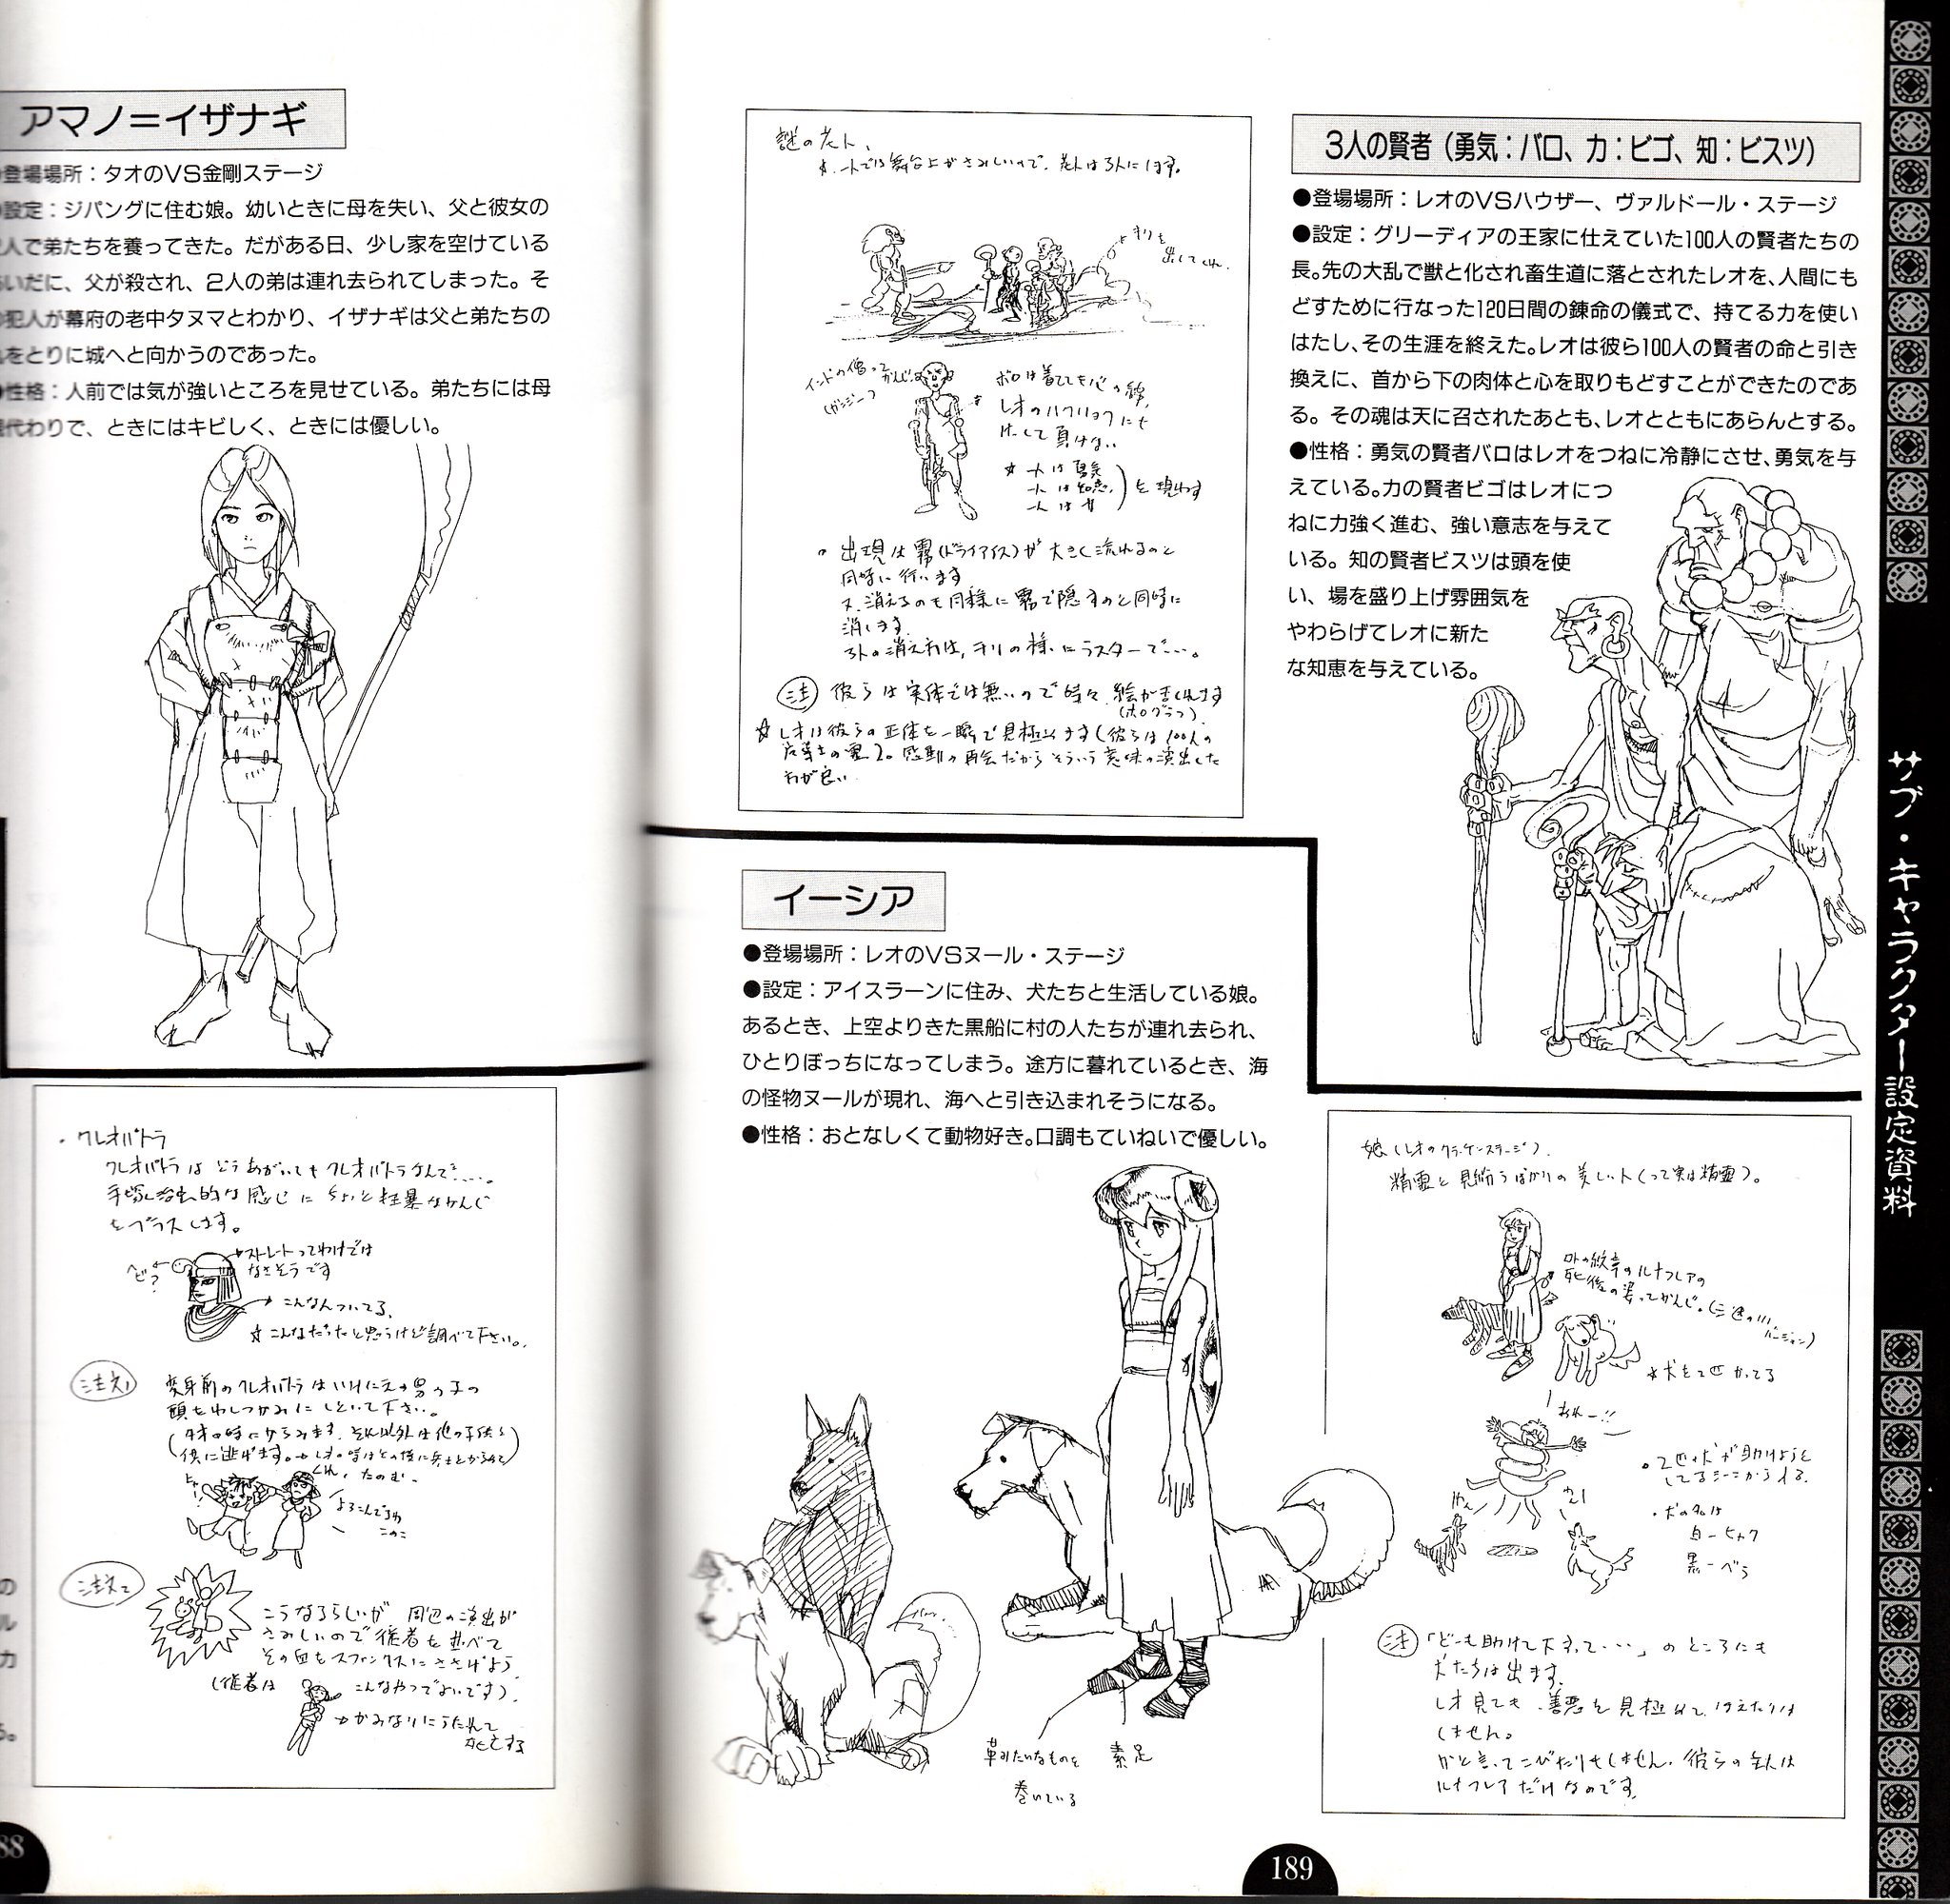 アマノ＝イザナギ
登場場所：タオのVS金剛ステージ
設定：ジパングに住む娘。幼いときに母を失い、父と彼女の
人で弟たちを養ってきた。だがある日、少し家を空けている
いだに、父が殺され、2人の弟は連れ去られてしまった。そ
犯人が幕府の老中タヌマとわかり、イザナギは父と弟たちの
をとりに城へと向かうのであった。
性格：人前では気が強いところを見せている。弟たちには母
代わりで、ときにはキビしく、ときには優しい。
・クレオパトラ
クレオパトラはどうあがいてもクレオパトラなんで……。
手塚治虫的な感じにちょっと粗暴なかんじ
をプラスします。
ヘビ?
ストレートってわけでは
なさそうです
こんなんついてる。
☆こんなだったと思うけど調べて下さい。
注文1
変身前のクレオパトラはいけにえの男の子の
頭をわしづかみにしといて下さい。
くれ、たのむ。
よろこんでるわ
このこ
注文2
こうなるらしいが 周辺の演出が
さみしいので従者を並べて
その血もスフィンクスにささげよう
(従者は
こんなやつでよいです)。
かみなりにうたれて
死亡する
88
謎の老人、
☆一人では舞台上がさみしいので、老人は3人にします。
キリを
出してくれ。
インドの僧って
かんじ
(ガンジー)
ボロは着てても心の錦、
レオのハクリョクにも
けして負けない
☆一人は勇気
一人は知恵、
一人は力
を現わす
。出現は霧(ドライアイス)が大きく流れるのと
同時に行います
又、消えるのも同様に霧で隠すのと同時に
消します。
3人の消え方は、キリの様にラスターで…。
注 彼らは実体では無いので時々、絵がまくれます
(ホログラフ)。
☆レオは彼らの正体を一瞬で見極めます(彼らは100人の
。感動の再会だからそういう意味の演出した
方が良い
3人の賢者（勇気：バロ、力：ビゴ、知：ビスツ）
●登場場所：レオのVSハウザー、ヴァルドール・ステージ
●設定：グリーディアの王家に仕えていた100人の賢者たちの
長。先の大乱で獣と化され畜生道に落とされたレオを、人間にも
どすために行なった120日間の錬命の儀式で、持てる力を使い
はたし、その生涯を終えた。レオは彼ら100人の賢者の命と引き
換えに、首から下の肉体と心を取りもどすことができたのであ
る。その魂は天に召されたあとも、レオとともにあらんとする。
●性格：勇気の賢者バロはレオをつねに冷静にさせ、勇気を与
えている。力の賢者ビゴはレオにつ
ねに力強く進む、強い意志を与えて
いる。知の賢者ビスツは頭を使
い、場を盛り上げ雰囲気を
やわらげてレオに新た
な知恵を与えている。
イーシア
●登場場所：レオのVSヌール・ステージ
●設定：アイスラーンに住み、犬たちと生活している娘。
あるとき、上空よりきた黒船に村の人たちが連れ去られ、
ひとりぼっちになってしまう。途方に暮れているとき、海
の怪物ヌールが現れ、海へと引き込まれそうになる。
●性格：おとなしくて動物好き。口調もていねいで優しい。
革みたいなものを
巻いている
素足
娘(レオのクラーケンステージ)。
精霊と見紛うばかりの美しい人(って実は精霊)。
ロトの紋章のルナフレアの
死後の姿ってかんじ。
バージョン)
☆犬を2匹かってる
あれー!!
わん
わん
。2匹の犬が助けようと
してるシーンから入る。
・犬の名は
白ーヒャク
黒ーベラ
注 「どーも助けて下さって…」のところにも
犬たちは出ます。
レオ見ても、善悪を見極めて、ほえたりは
しません。
かと言ってこびたりもしません。彼らの主人は
ルナフレアだけなのです。
189
サブ・キャラクター設定資料